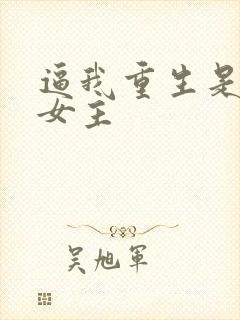 逼我重生是
女主
吴旭军